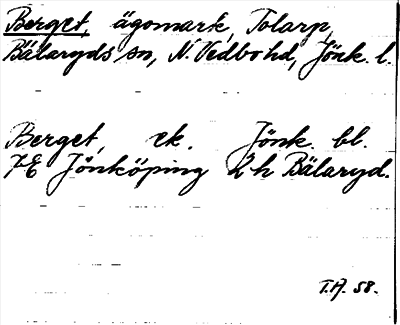 Berget, ägomark, Tolarp,
Bälaryds sn, N. Vedbo hd, Jönk. l.
Berget ek. Jönk. bl.
7E Jönköping 2h Bälaryd.
T.A. 58.